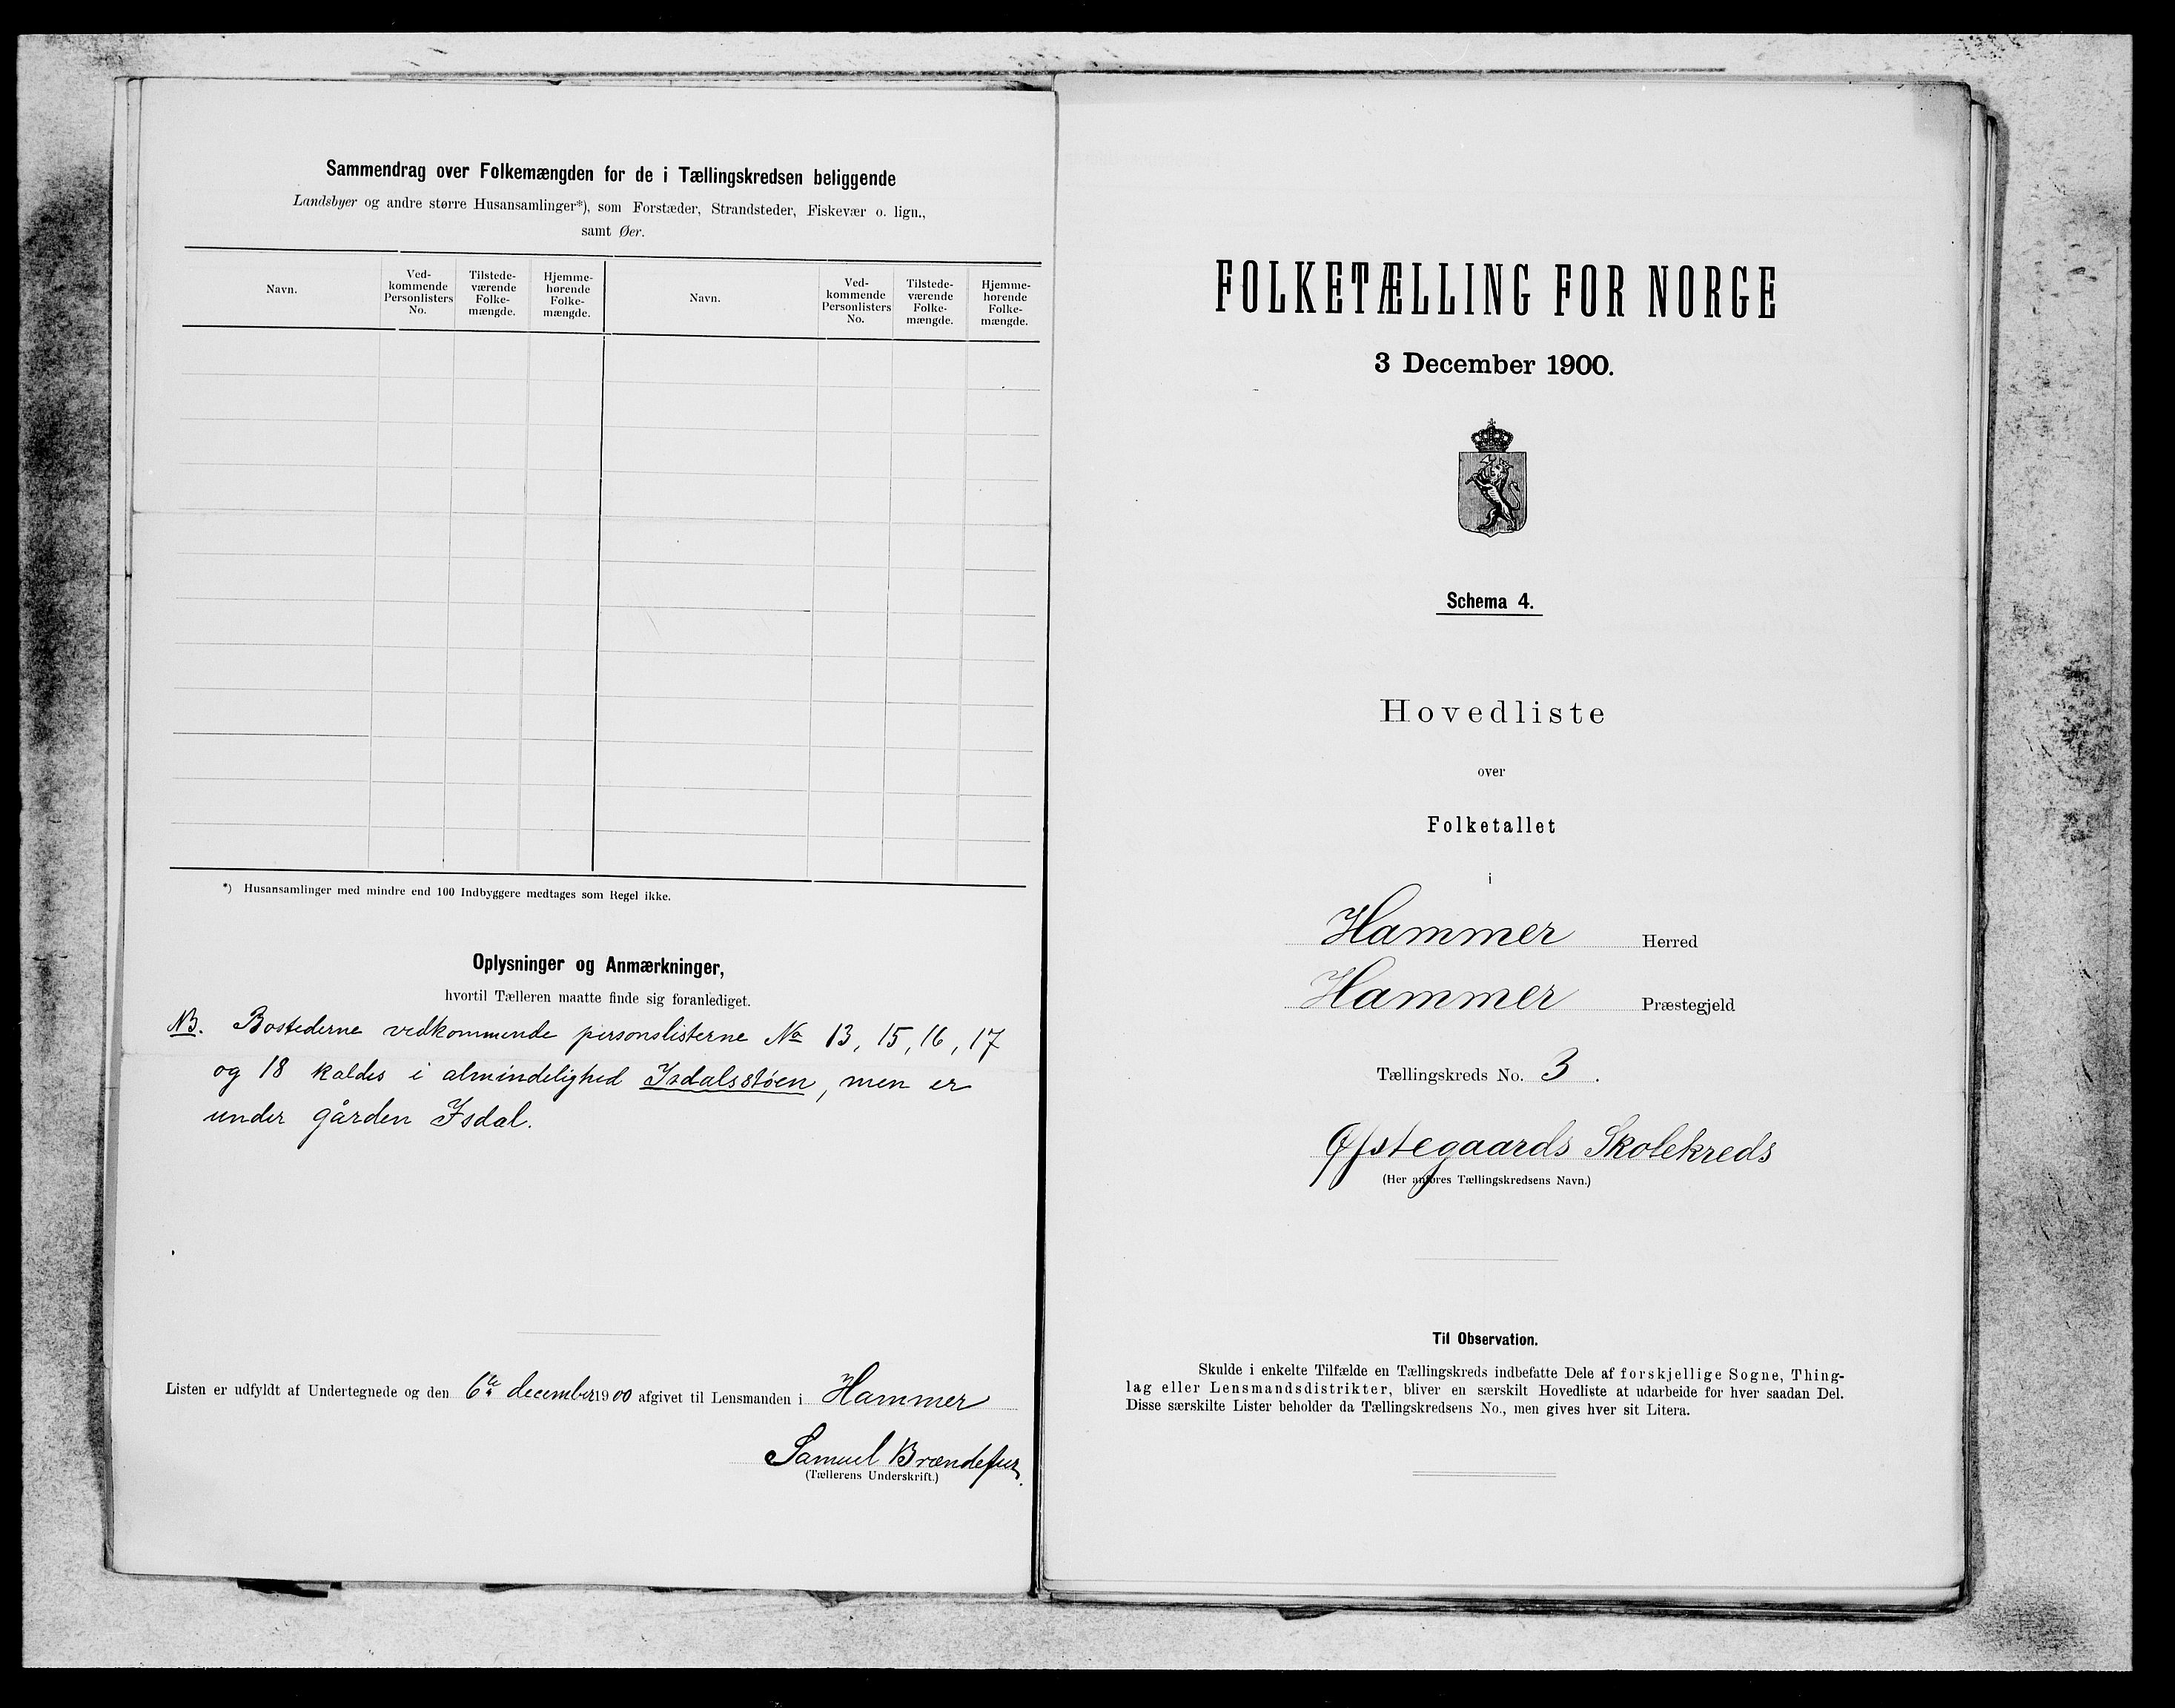 Sammendrag over Folkemængden for de i Tællingskredsen beliggende
Landsbyer og andre større Husansamlinger*), som Forstæder, Strandsteder, Fiskevær o. lign.,
samt Øer.
Navn.
Ved-
kommende
Personlisters
No.
Tilstede-
værende
Folke-
mængde.
Hjemme-
hørende
Folke-
mængde.
Navn.
Ved-
kommende
Personlisters
No.
Tilstede-
værende
Folke-
mængde.
Hjemme-
hørende
Folke-
mængde.
*) Husansamlinger med mindre end 100 Indbyggere medtages som Regel ikke.
Oplysninger og Anmærkninger,
hvortil Tælleren maatte finde sig foranlediget.
NB. Bostederne vedkommende personslisterne No 13, 15, 16, 17
og 18 kaldes i almindelighed Isdalsstöen, men er
under gården Isdal.
Listen er udfyldt af Undertegnede og den 6te december 1900 afgivet til Lensmanden i Hammer
Samuel
(Tællerens Underskrift.)
FOLKETÆLLING FOR NORGE
3 December 1900.
Schema 4.
Hovedliste
over
Folketallet
i
Hammer Herred
Hammer Præstegjeld
Tællingskreds No. 3.
Østegaards Skolekreds
(Her anføres Tællingskredsens Navn.)
Til Observation.
Skulde i enkelte Tilfælde en Tællingskreds indbefatte Dele af forskjellige Sogne, Thing-
lag eller Lensmandsdistrikter, bliver en særskilt Hovedliste at udarbeide for hver saadan Del.
Disse særskilte Lister beholder da Tællingskredsens No., men gives hver sit Litera.